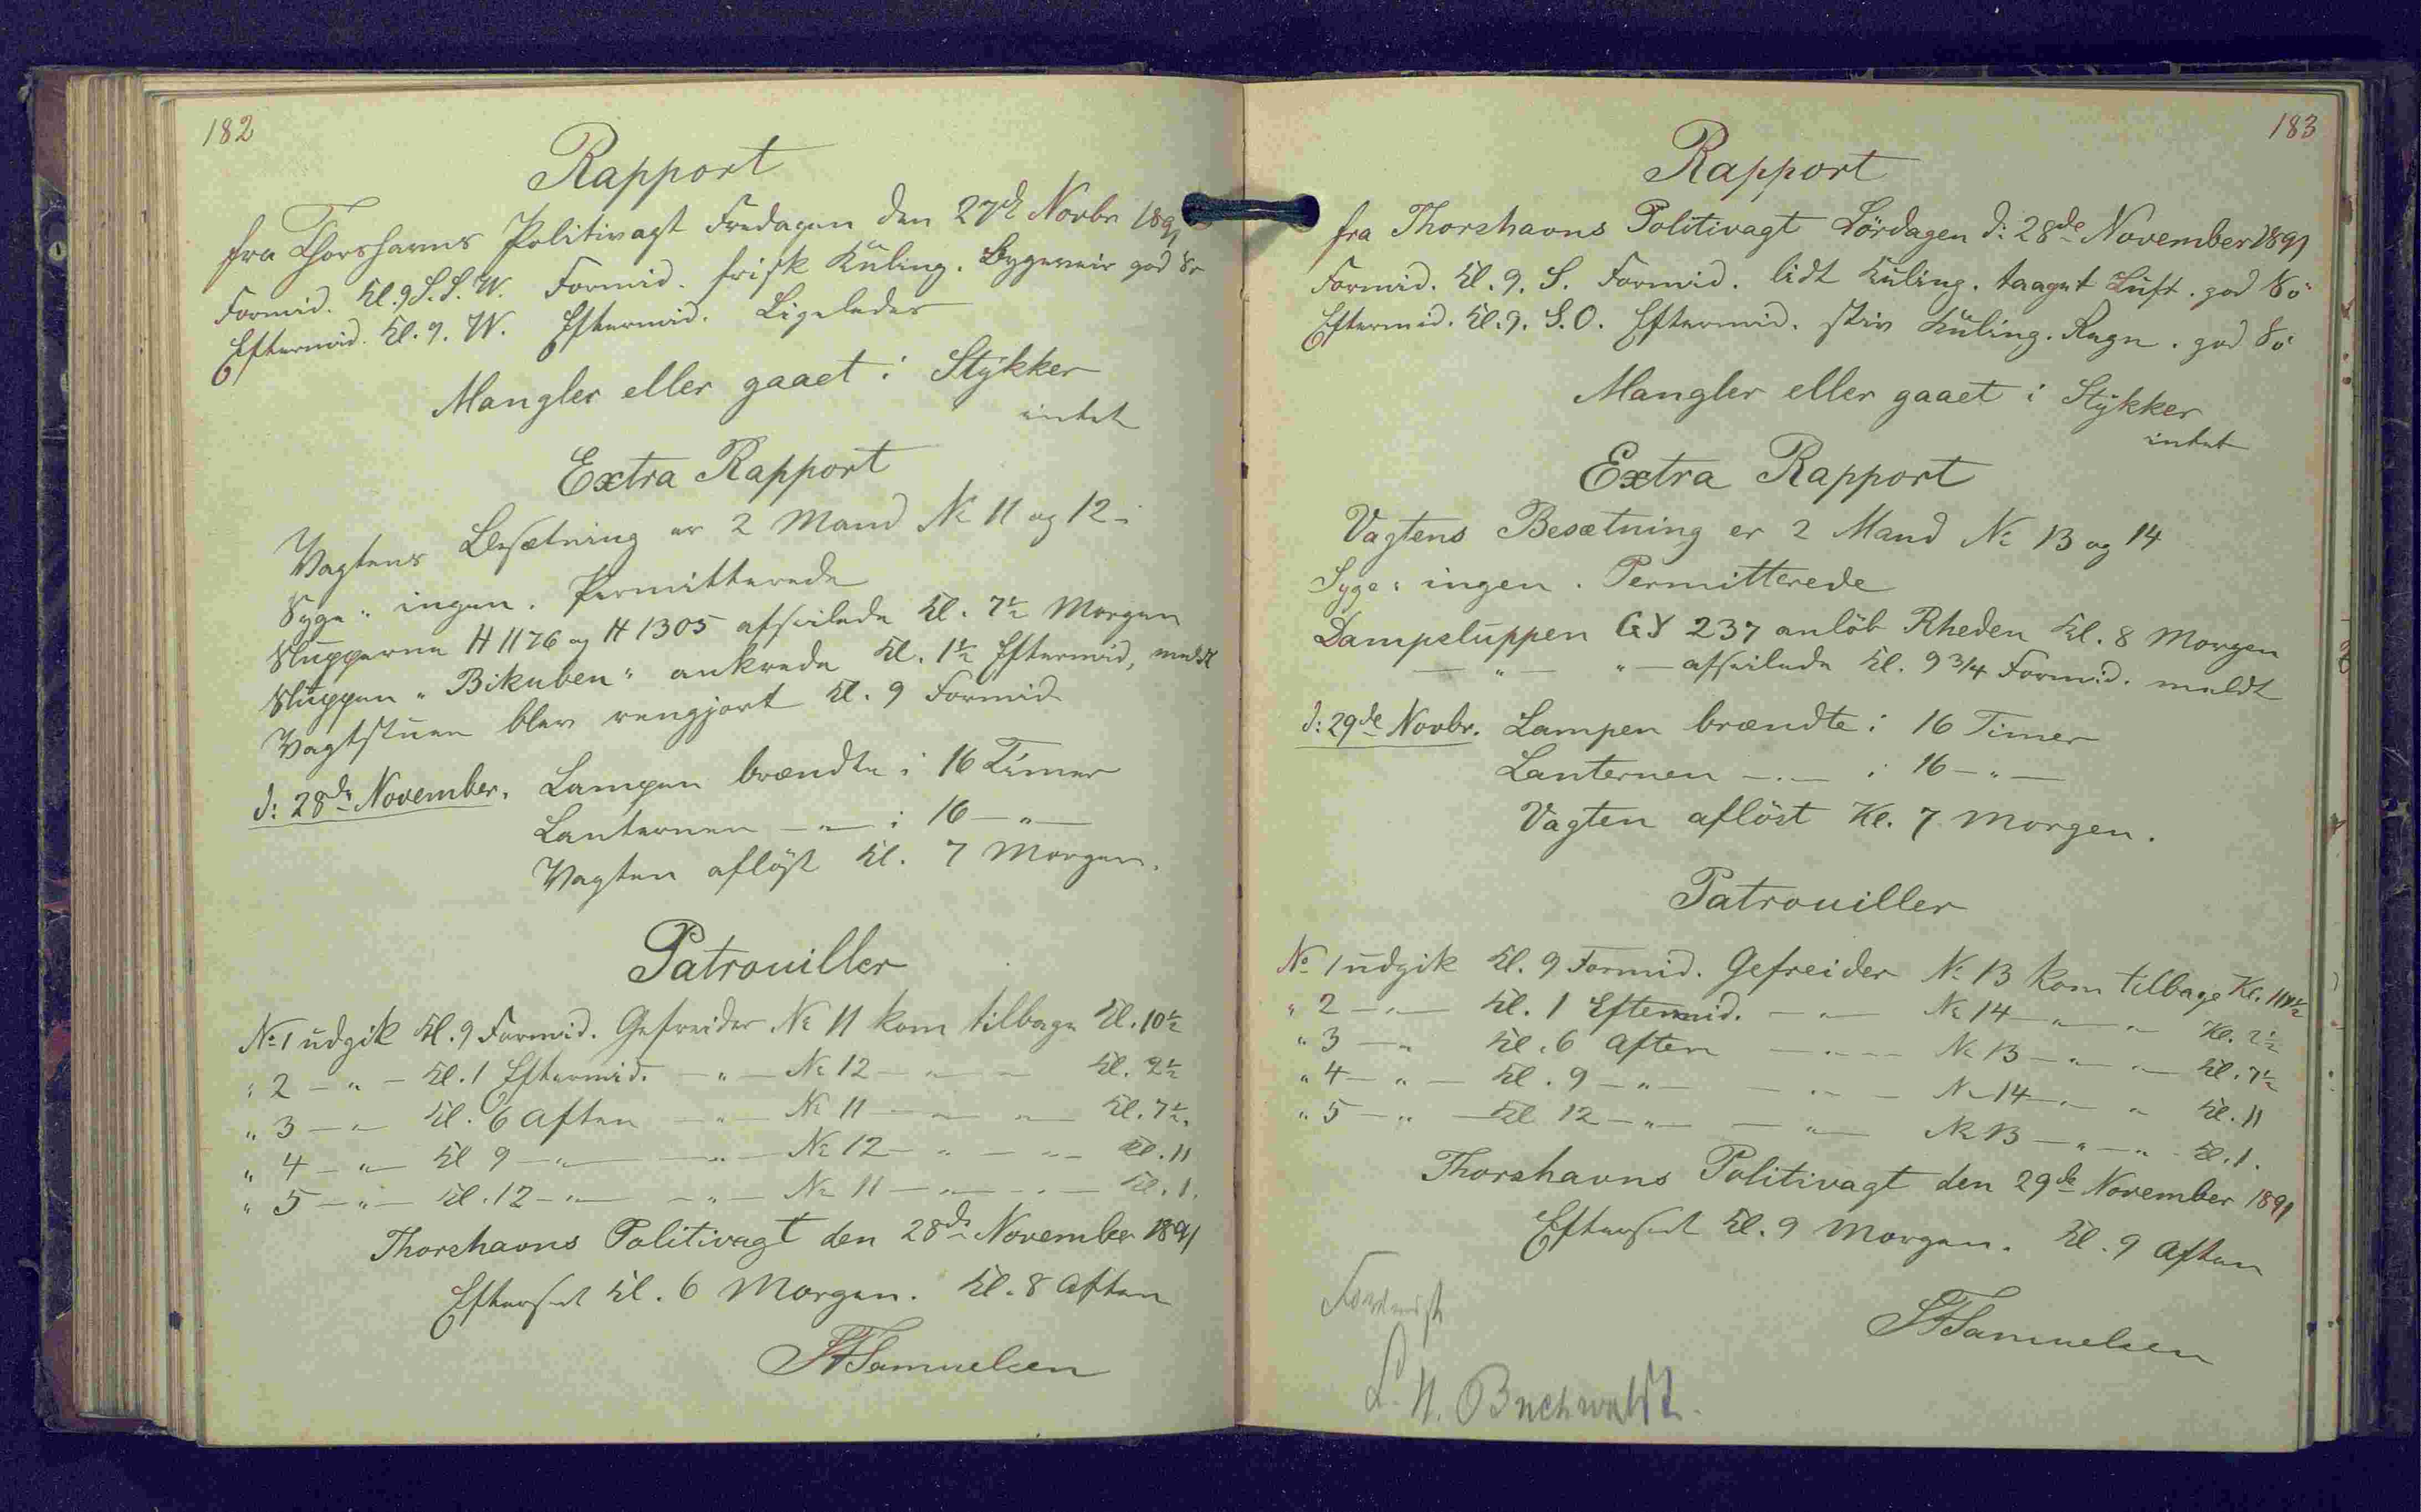 182
Rapport
fra Thorshavns Politivagt Fredagen den 27de Novbr 1891
Formid. Kl. 9 S.S.W. Formid. frisk Kuling. Bygeveir god
Eftermid. Kl. 9. W. Eftermid. Ligeledes
Mangler eller gaaet i Stykker
intet
Extra Rapport
Vagtens Besætning er 2 Mand No 11 og 12
Syge " ingen. Permitterede
Slupperne H 1176 og H 1305 afseilede Kl. 7½ Morgen
Sluppen " Bikuben " ankrede Kl. 1½ Eftermid, meldt
Vagtstuen blev rengjort Kl. 9 Formid
d: 28de November. Lampen brændte i 16 Timer
Lanternen — " — i 16 — " —
Vagten afløst Kl. 7 Morgen.
Patrouiller
No 1 udgik Kl. 9 Formid. Gefreider No 11 kom tilbage Kl. 10½
" 2 — " — Kl. 1 Eftermid. — " — No 12 — " — Kl. 2½
" 3 — " — Kl. 6 Aften — " — No 11 — " — " — Kl. 7½.
" 4 — " — Kl 9 — " — — " — No 12 — " — " — Kl. 11
" 5 — " — Kl. 12 — " — — " — No 11 — " — " — Kl. 1.
Thorshavns Politivagt den 28de November 1891
Efterseet Kl. 6 Morgen. Kl. 8 Aften
Samuelsen
183
Rapport
fra Thorshavns Politivagt Lördagen d: 28de November 1891
Formid. Kl. 9. S. Formid. lidt Kuling. taaget Luft. god
Eftermid. Kl. 9. S.O. Eftermid. stiv Kuling. Regn. god
Mangler eller gaaet i Stykker
intet
Extra Rapport
Vagtens Besætning er 2 Mand No 13 og 14
Syge: ingen. Permitterede
Dampsluppen GY 237 anlöb Rheden Kl. 8 Morgen
— " — " — afseilede Kl. 9 3/4 Formid. meldt
d: 29de Novbr. Lampen brændte i 16 Timer
Lanternen — " — i 16 — " —
Vagten aflöst Kl. 7 Morgen.
Patrouiller
No 1 udgik Kl. 9 Formid. Gefreider No 13 kom tilbage Kl.
" 2 — " — Kl. 1 Eftermid. — " — No 14 — " — " Kl. 2½
" 3 — " Kl. 6 Aften — " — No 13 — " — " — Kl. 7½
" 4 — " — Kl. 9 — " — — " — No 14 — " — " Kl. 11
" 5 — " — Kl 12 — " — — " — No 13 — " — " Kl. 1.
Thorshavns Politivagt den 29de November 1891
Efterseet Kl. 9 Morgen. Kl. 9 Aften
Samuelsen
Buchwaldt.